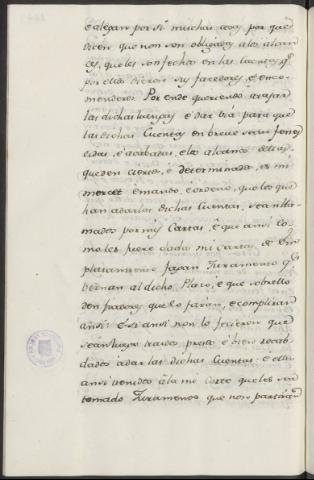 e alegan por sí muchas cosas por que
dicen que non son obligados a los alcan-
ces, que les son fechos en las Cuentas q.e
por ellos dieron sus facedores, é enco-
menderos. Por ende queriendo atajar
las dichas luengas é dar vía para que
las dichas Cuentas en breve sean fenes-
cidas, é acabadas, e los alcances dellas
queden ciertos, é determinados, es mi
merced é mando, é ordeno, que los que
han a dar las dichas Cuentas, sean lla-
mados por mis Cartas, é que ansi co-
mo les fuere dada mi Carta de em-
plazamiento fagan Juramento q.e
vernan al dicho Plazo, é que sobrello
den fiadores que lo farán, é complirán
ansi: E si ansi non lo ficieren que
sean luego traidos presos é bien recab-
dados a dar las dichas Cuentas: é ellos
ansi venidos á la mi Corte que les sea
tomado Juramento que non partirán